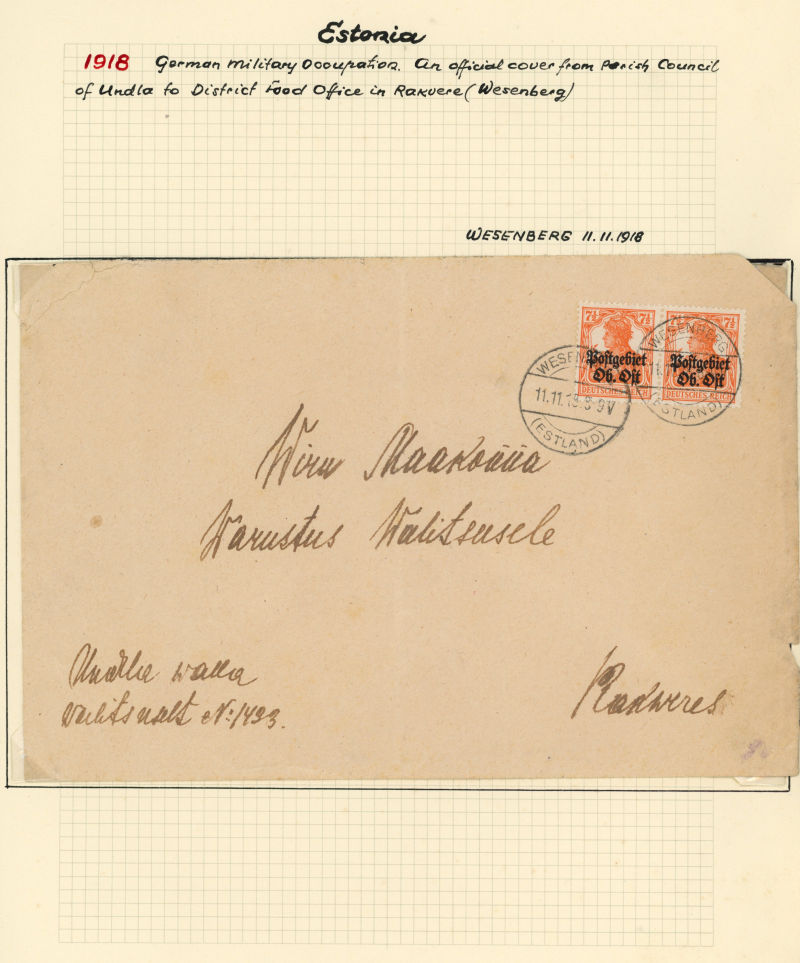 Estonia
1918 German Military Occupation. An official cover from Parish Council
of Undla to District Food Office in Rakvere (Wesenberg)
WESENBERG 11.11.1918
7½ 7½ 7½ 7½
Postgebiet Ob. Ost
DEUTSCHES REICH
Postgebiet Ob. Ost
DEUTSCHES REICH
WESENBERG
11.11.18. 8-9V
(ESTLAND)
WESENBERG
(ESTLAND)
Wiru Maakonna
Warustus Walitsusele
Undla walla
walitsuselt No: 1493.
Rakweres